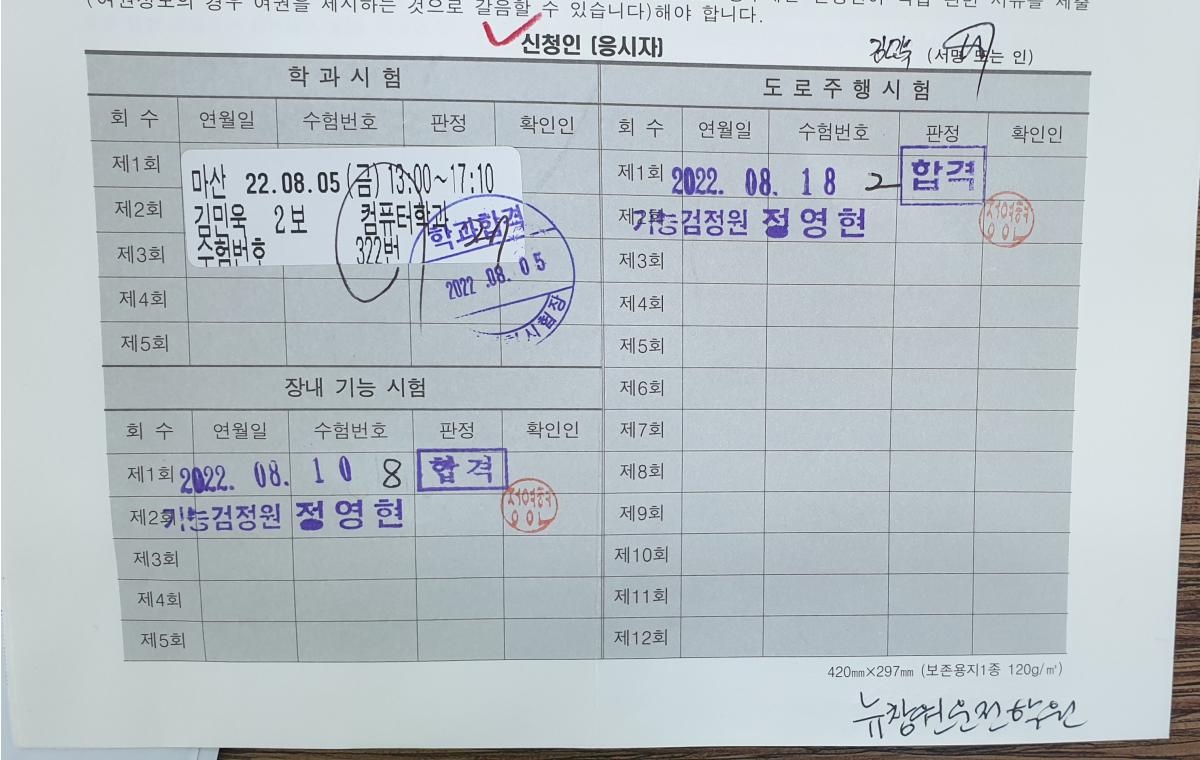 (여권정보의 경우 여권을 제시하는 것으로 갈음할 수 있습니다)해야 합니다.
신청인 (응시자) 김민욱 (서명 또는 인)
학과시험
회 수 연월일 수험번호 판정 확인인
제1회
제2회
제3회
제4회
제5회
마산 22.08.05 (금) 13:00~17:10
김민욱 2보 컴퓨터학과
수험번호 322번
학과합격
2022.08.05
시험장
장내 기능 시험
회 수 연월일 수험번호 판정 확인인
제1회 2022. 08. 10 8 합격
제2회 기능검정원 정영현
제3회
제4회
제5회
도로주행시험
회 수 연월일 수험번호 판정 확인인
제1회 2022. 08. 18 2 합격
제2회 기능검정원 정영현
제3회
제4회
제5회
제6회
제7회
제8회
제9회
제10회
제11회
제12회
420㎜×297㎜ (보존용지1종 120g/㎡)
뉴창원운전학원